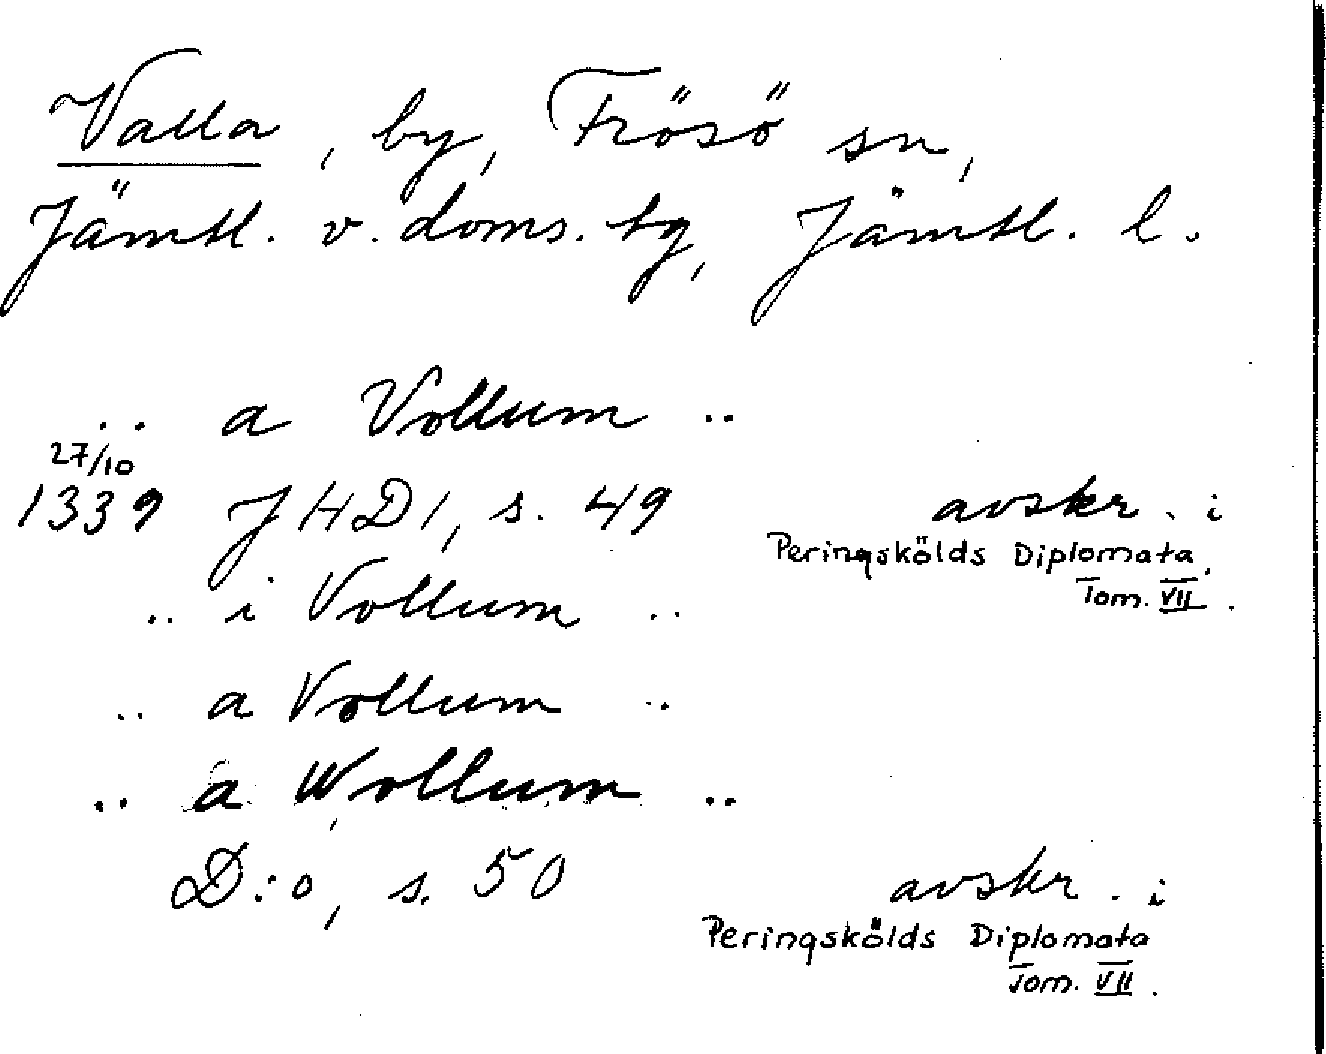 Valla, by, Frösö sn,
Jämtl. v. doms. tg, Jämtl. l.
.. a Vollum ..
27/10
1339 JHD1, s. 49 avskr. i
Peringskölds Diplomata,
Tom. VII.
.. i Vollum ..
.. a Vollum ..
.. a Wollum ..
D:o, s. 50 avskr. i
Peringskölds Diplomata
Tom. VII.